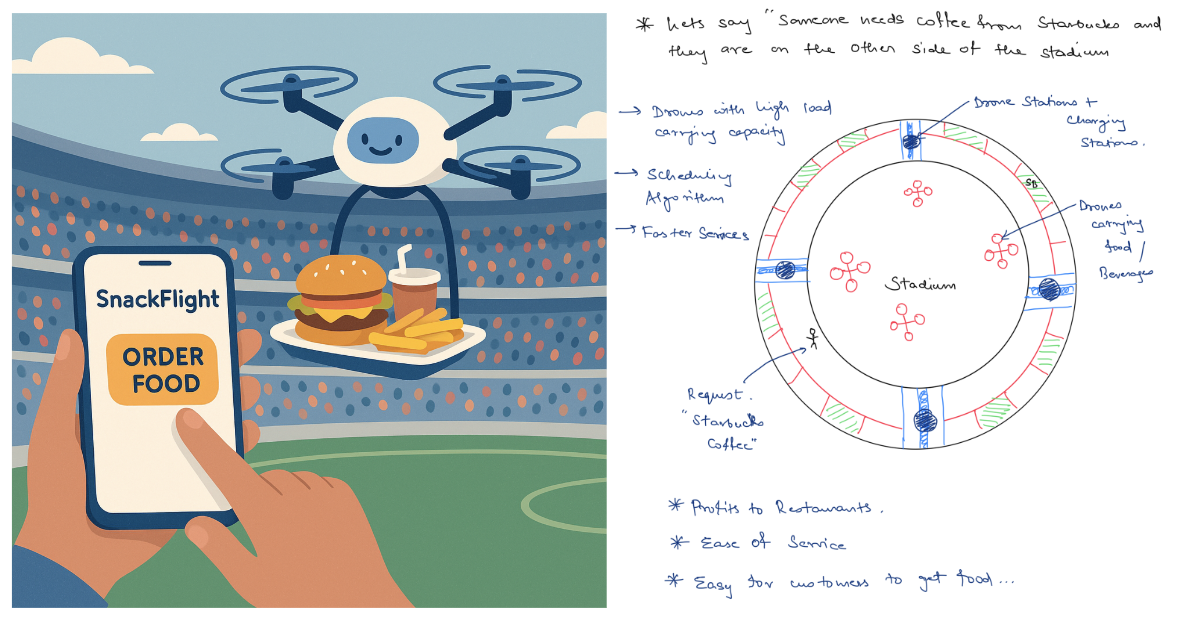 SnackFlight
ORDER
FOOD
* Lets say "Someone needs coffee from Starbucks and
they are on the other side of the stadium
→ Drones with high load
carrying capacity
→ Scheduling
Algorithm
→ Faster Services
Drone Stations +
Charging
Stations.
SB
Drones
carrying
food /
Beverages
Stadium
Request.
"Starbucks
Coffee"
* Profits to Restaurants.
* Ease of Service
* Easy for customers to get food...